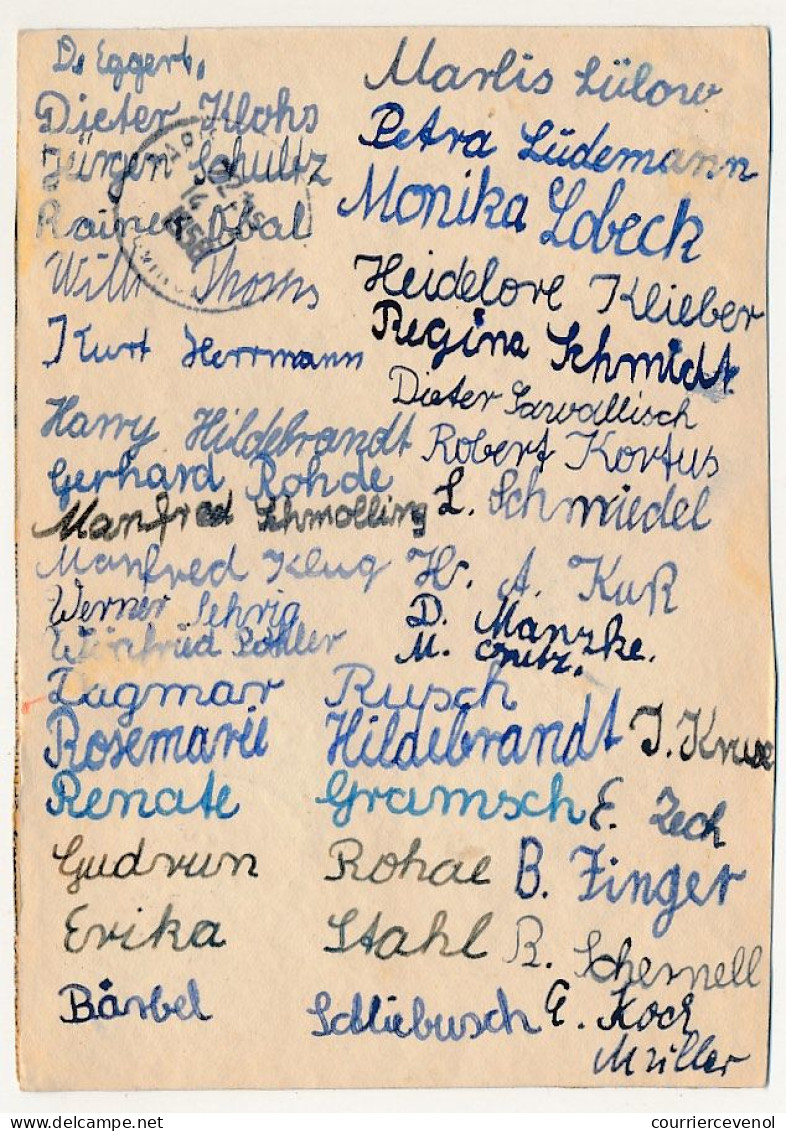 D. Eggert.
Dieter Klohs
Jürgen Schultz
Rainer Obal
Willi Thoms
Kurt Herrmann
Harry Hildebrandt
Gerhard Rohde
Manfred Schmolling
Manfred Klug
Werner Sehrig
Winfried Köhler
Marlis Lülow
Petra Lüdemann
Monika Lobeck
Heidelore Klieber
Regina Schmidt
Dieter Sawallisch
Robert Kortus
L. Schmiedel
H. A. Kuß
D. Manzke.
M.
Dagmar Rusch
Rosemarie Hildebrandt J. Kruse
Renate Gramsch E. Zech
Gudrun Rohde B. Finger
Erika Stahl R. Schernell
Bärbel Schliebusch E. Koch
Müller
courriercevenol